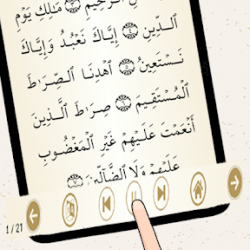 ٱلرَّحِيمِ ۝٣ مَـٰلِكِ يَوْمِ
ٱلدِّينِ ۝٤ إِيَّاكَ نَعْبُدُ وَإِيَّاكَ
نَسْتَعِينُ ۝٥ ٱهْدِنَا ٱلصِّرَٰطَ
ٱلْمُسْتَقِيمَ ۝٦ صِرَٰطَ ٱلَّذِينَ
أَنْعَمْتَ عَلَيْهِمْ غَيْرِ ٱلْمَغْضُوبِ
عَلَيْهِمْ وَلَا ٱلضَّآلِّينَ ۝٧
1/21